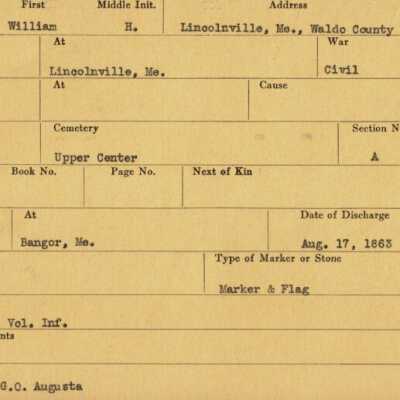 First Middle Init. Address
William H. Lincolnville, Me., Waldo County
At War
Lincolnville, Me. Civil
At Cause
Cemetery Section N
Upper Center A
Book No. Page No. Next of Kin
At Date of Discharge
Bangor, Me. Aug. 17, 1863
Type of Marker or Stone
Marker & Flag
Vol. Inf.
nts
G.O. Augusta